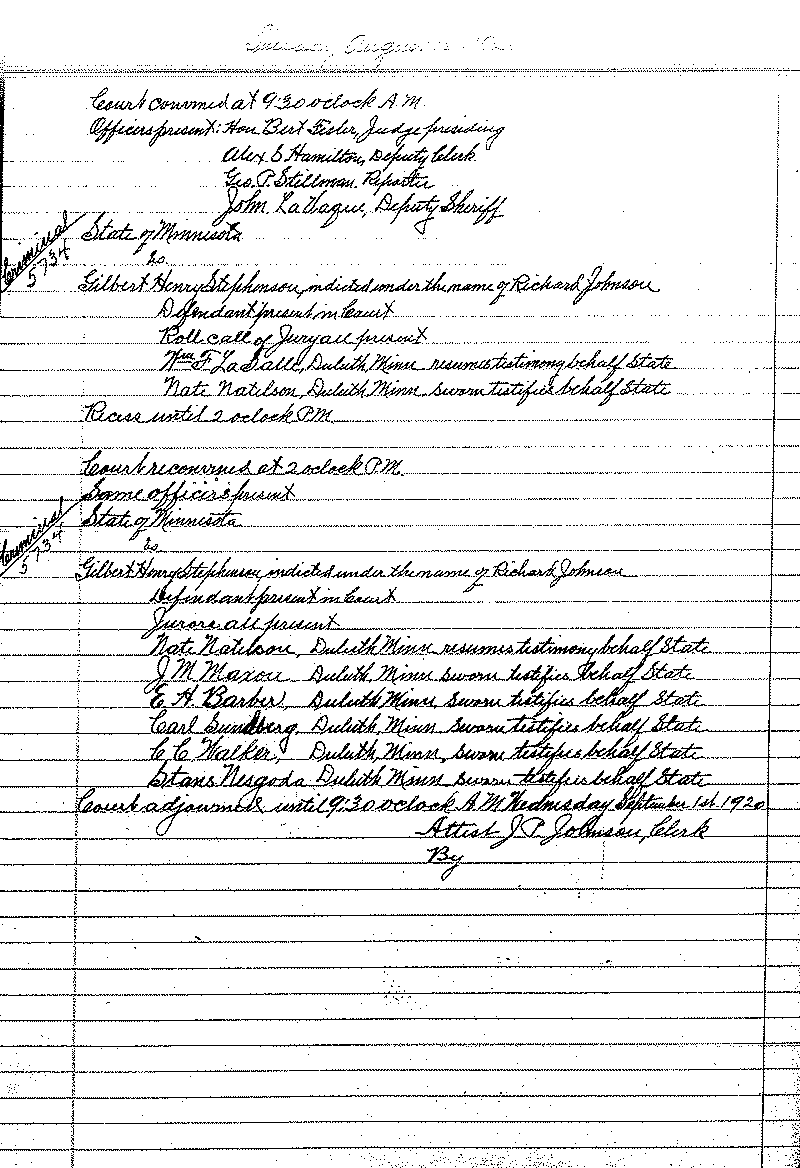 Tuesday, August
Court convened at 9:30 oclock A.M.
Officers present: Hon Bert Fesler, Judge presiding
Alex S Hamilton, Deputy Clerk
Geo. P. Stillman Reporter
John LaVaque, Deputy Sheriff
Criminal
5734
State of Minnesota
vs.
Gilbert Henry Stephenson, indicted under the name of Richard Johnson
Defendant present in Court
Roll call of Jury all present
Wm F LaSalle, Duluth Minn resumes testimony behalf State
Nate Natelson, Duluth Minn sworn testifies behalf State
Recess until 2 oclock P.M.
Court reconvened at 2 oclock P.M.
Same officers present
Criminal
5734
State of Minnesota
vs.
Gilbert Henry Stephenson, indicted under the name of Richard Johnson
Defendant present in Court
Jurors all present
Nate Natelson, Duluth Minn resumes testimony behalf State
J M Maxon Duluth Minn sworn testifies behalf State
E. H. Barber, Duluth Minn sworn testifies behalf State
Carl Sundberg, Duluth Minn sworn testifies behalf State
C C Walker, Duluth, Minn, sworn testifies behalf State
Stans Nesgoda Duluth Minn sworn testifies behalf State
Court adjourned until 9:30 oclock A.M. Wednesday September 1st 1920
Attest J. P. Johnson, Clerk
By